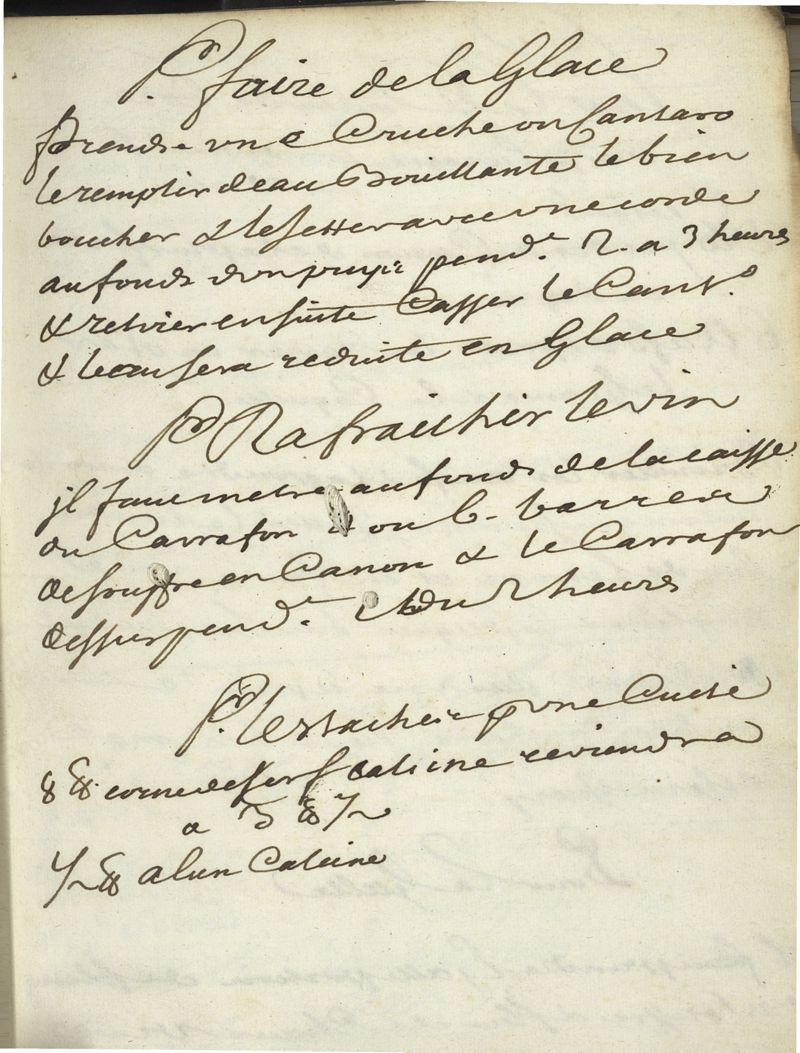 Pr. faire de la Glace
Prendre une Cruche ou Cantaro
le remplir deau Bouillante le bien
boucher & le jetter avec une corde
au fonds dun puys pendt. 2. a 3 heures
& retirer ensuitte Casser le Cant.o
& leau sera reduite en Glace
Pr Rafraichir le vin
jl faut metre au fonds de la caisse
du Carrafon ou 6. barres de
de souffre en Canon & le Carrafon
dessus pend.t 2 heures
Pr. les taches pr une Cuite
8 ℔ corne de serf Calcine reviendra
a 3 ℔ ½
½ ℔ alun Calcine